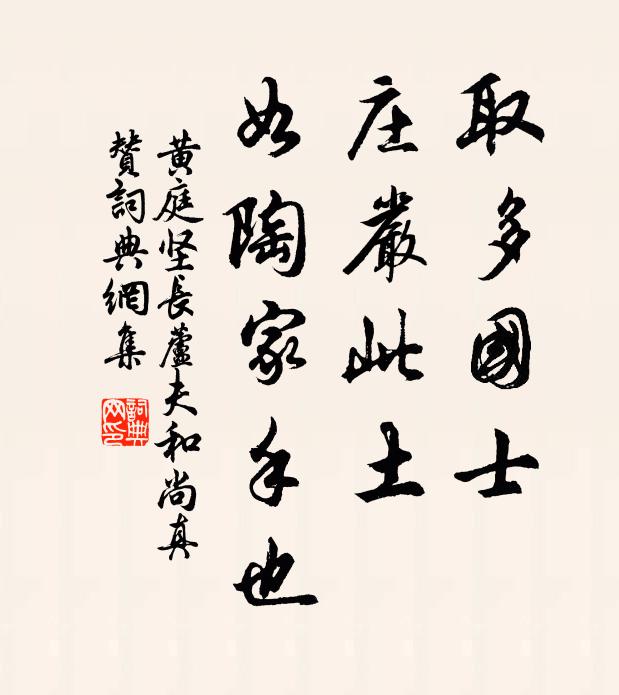 取多國士
庄嚴此土
如陶家手也
黄庭坚長蘆夫和尚真
賛詞典網集
詞典
网印